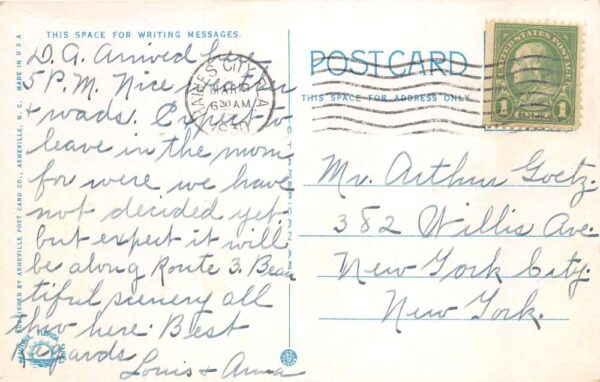 THIS SPACE FOR WRITING MESSAGES.
D. A. Arrived here
5 P.M. Nice
+ roads. Expect to
leave in the morn
for were we have
not decided yet.
but expect it will
be along Route 3. Beau
tiful scenery all
thru here. Best
Regards
Louis + Anna
PUBLISHED BY ASHEVILLE POST CARD CO., ASHEVILLE, N. C. MADE IN U S A
HAINES CITY, FLA.
MAR
6 30 AM
1930
POST CARD
THIS SPACE FOR ADDRESS ONLY
UNITED STATES POSTAGE
1 1
Mr. Arthur Goetz.
382 Willis Ave.
New York City.
New York.